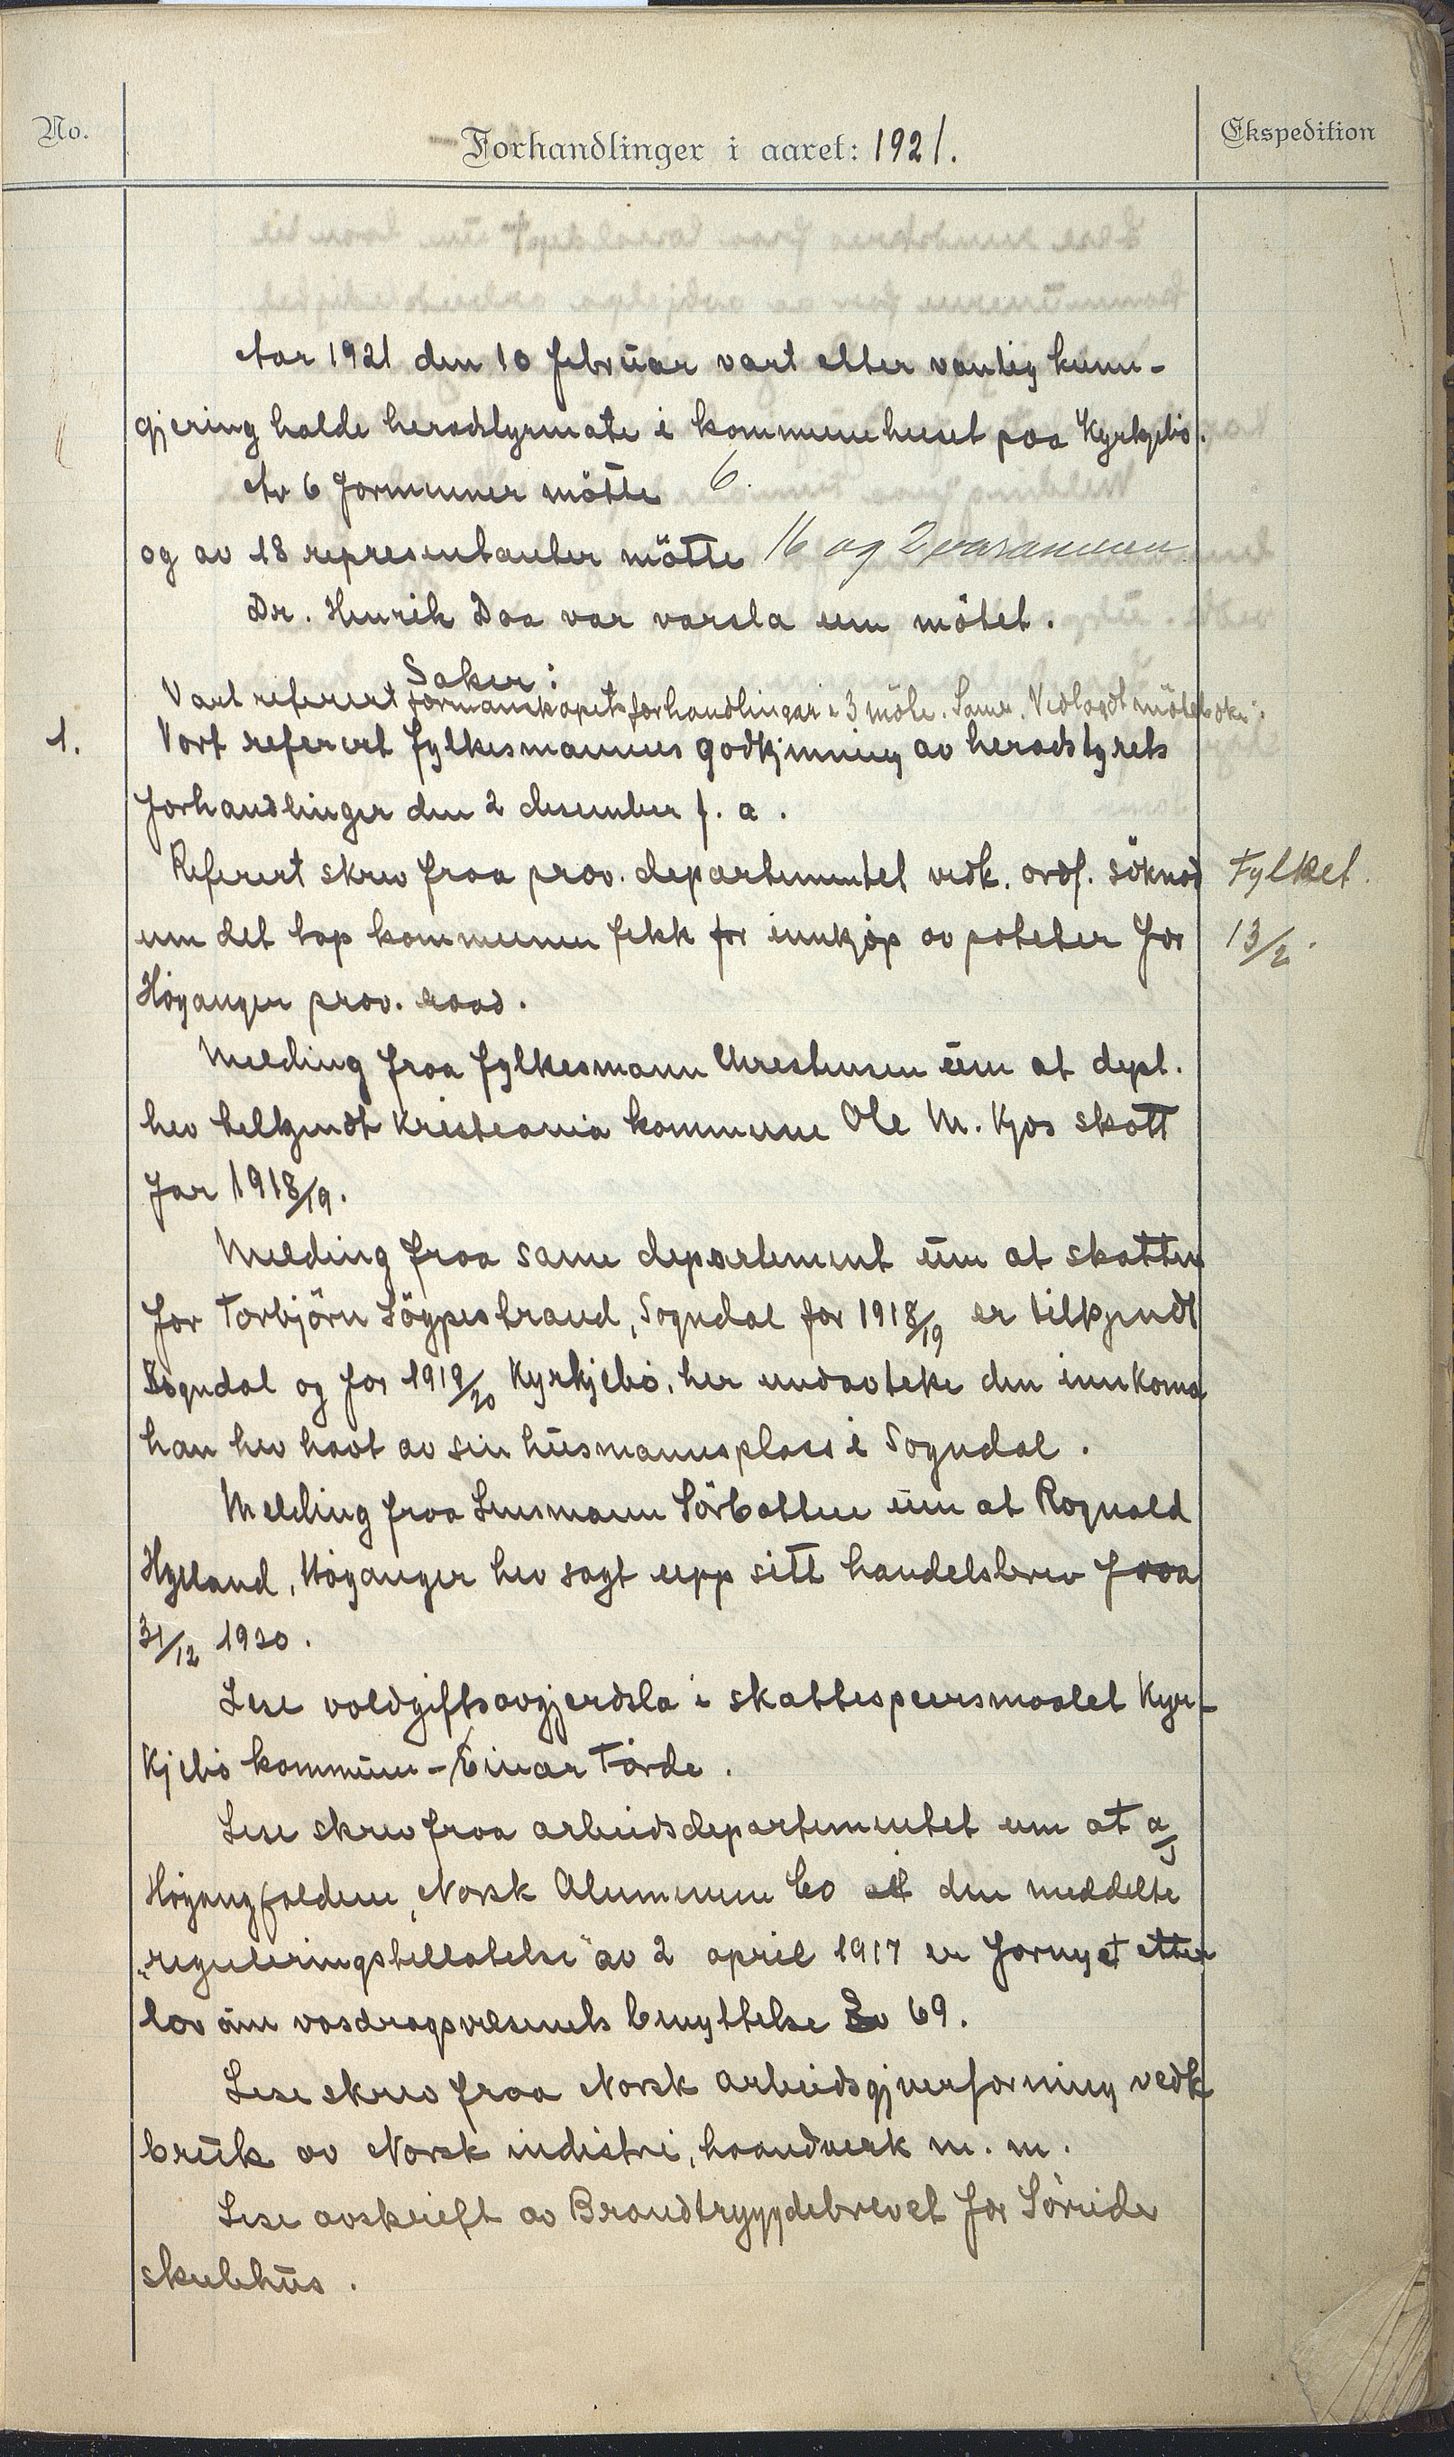 No.
Forhandlinger i aaret: 1921.
Ekspedition
Aar 1921 den 10 februar vart etter vanlig kunn-
gjering halde heradstyrmøte i kommunehuset paa Kyrkjebø.
Av 6 formenner møtte 6.
og av 18 representanter møtte 16 og 2 varamenn
Dr. Henrik Daa var varsla um møtet.
Saker:
Vart referert formannskapets forhandlingar i 3 møte. Samr. Vedlagdt møtebøker.
1. Vart referert fylkesmannens godkjenning av heradstyrets
forhandlinger den 2 desember f. a.
Referert skrev fraa prov. departementet vedk. ordf. søknad
um det tap kommunen fekk for innkjøp av poteter for
Høyanger prov. raad.
Fylket.
13/2.
Melding fraa fylkesmann Christensen um at dept.
hev tilkjendt Kristiania kommune Ole M. Kjøs skatt
for 1918/19.
Melding fraa same departement um at skatten
for Torbjørn Løgpestrand, Sogndal for 1918/19 er tilkjendt
Sogndal og for 1919/20 Kyrkjebø, her undavteke den innkoma
han hev havt av sin husmannsplass i Sogndal.
Melding fraa Lensmann Sørbotten um at Rognald
Hylland, Høyanger hev sagt upp sitt handelsbrev fraa
31/12 1920.
Lese voldgiftsavgjerdsla i skattespursmaalet Kyr-
kjebø kommune - Einar Førde.
Lese skrev fraa arbeidsdepartementet um at a/s
Høyangfaldene, Norsk Aluminium Co den meddelte
„reguleringstillatelse" av 2 april 1917 er fornyet etter
lov um vasdragsvæsenets benyttelse § 69.
Lese skrev fraa Norsk arbeidsgjverforning vedk
bruk av Norsk industri, haandverk m. m.
Lese avskrift av Brandtrygdebrevet for Søreide
skulehus.